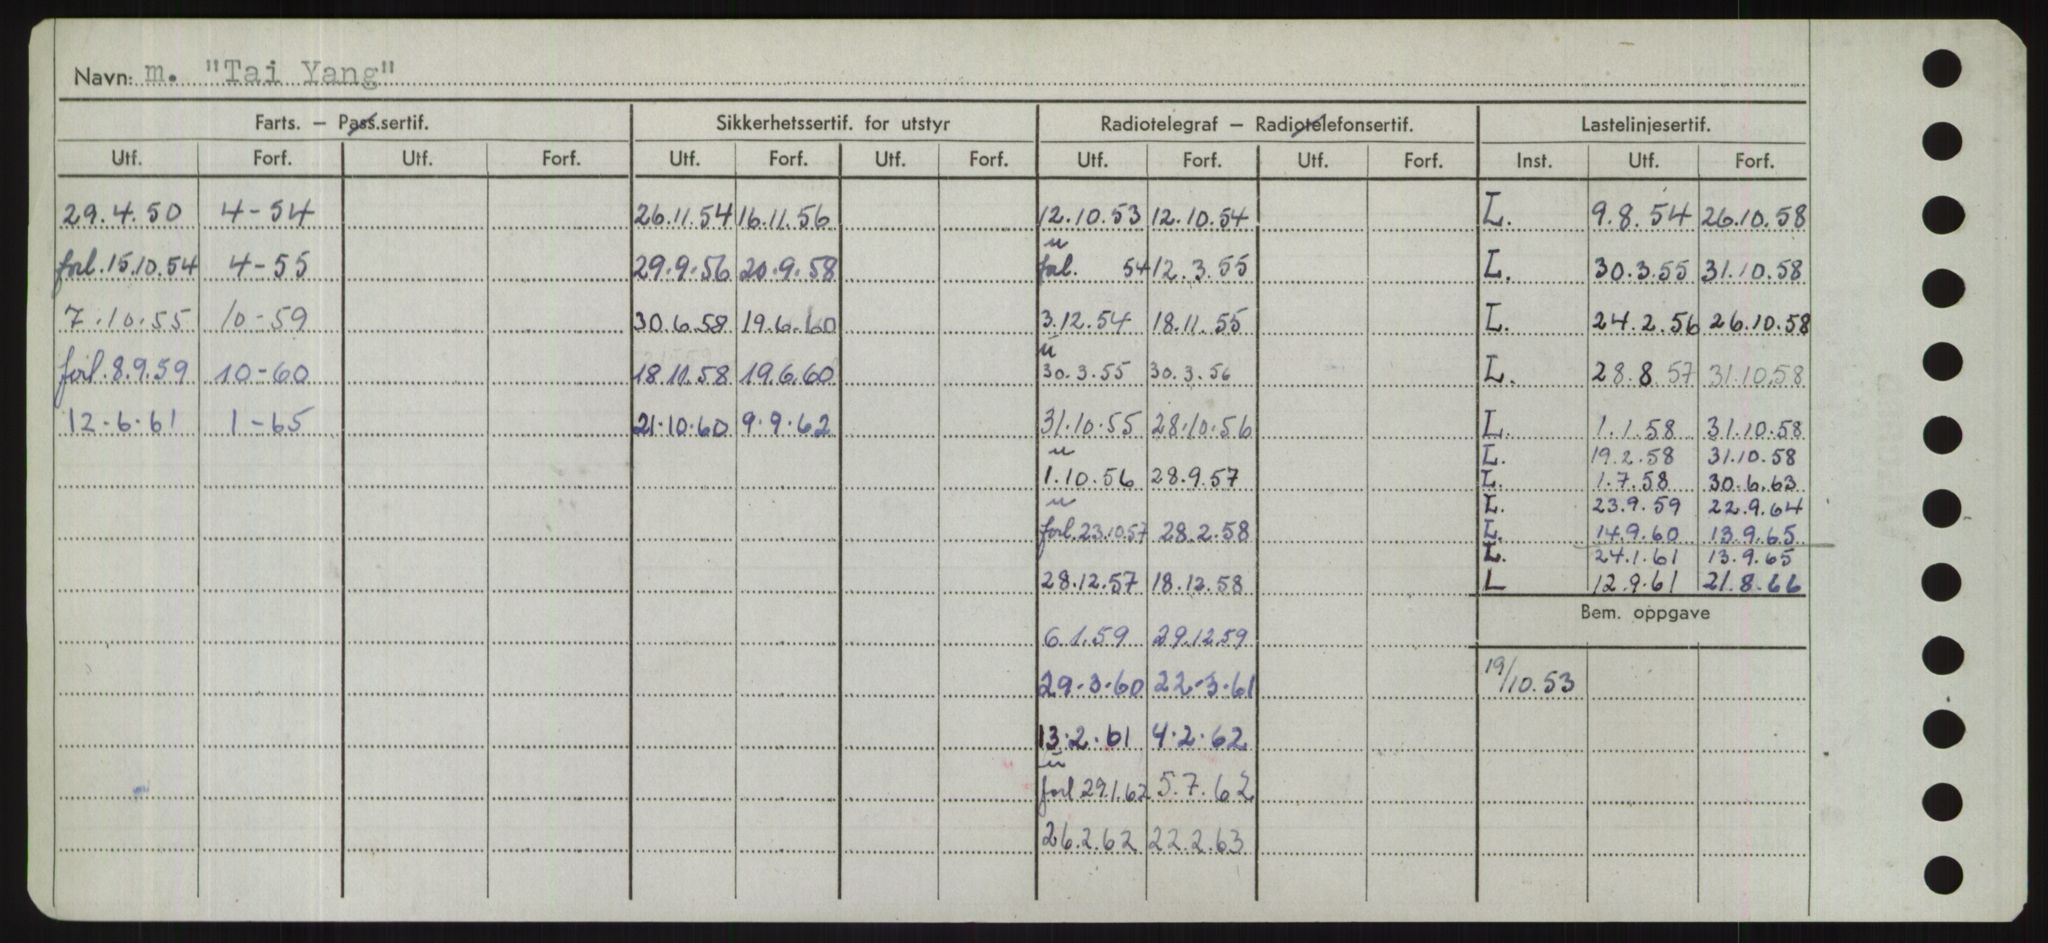 Navn: m. "Tai Yang"
Farts. — Pass.sertif. Sikkerhetssertif. for utstyr Radiotelegraf — Radiotelefonsertif. Lastelinjesertif.
Utf. Forf. Utf. Forf. Utf. Forf. Utf. Forf. Utf. Forf. Utf. Forf. Inst. Utf. Forf.
29.4.50 4-54 26.11.54 16.11.56 12.10.53 12.10.54 L. 9.8.54 26.10.58
u
forl. 15.10.54 4-55 29.9.56 20.9.58 forl. 54 12.3.55 L. 30.3.55 31.10.58
7.10.55 10-59 30.6.58 19.6.60 3.12.54 18.11.55 L. 24.2.56 26.10.58
u
forl. 8.9.59 10-60 18.11.58 19.6.60 30.3.55 30.3.56 L. 28.8.57 31.10.58
12.6.61 1-65 21.10.60 9.9.62 31.10.55 28.10.56 L. 1.1.58 31.10.58
u L. 19.2.58 31.10.58
1.10.56 28.9.57 L. 1.7.58 30.6.63
u L. 23.9.59 22.9.64
forl. 23.10.57 28.2.58 L. 14.9.60 13.9.65
L. 24.1.61 13.9.65
28.12.57 18.12.58 L 12.9.61 21.8.66
Bem. oppgave
6.1.59 29.12.59
29.3.60 22.3.61 19/10.53
13.2.61 4.2.62
u
forl 29.1.62 5.7.62
26.2.62 22.2.63